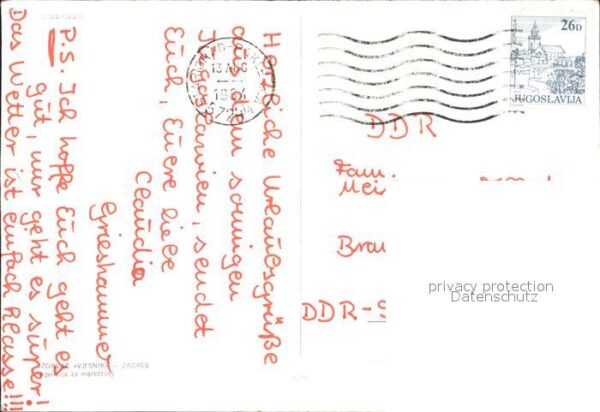 STARIGRAD
Herzliche Urlaubsgrüße
aus dem sonnigen
Jugoslawien, sendet
Euch, Euere liebe
Claudia
Grieshammer
P.S. Ich hoffe Euch geht es
gut, mir geht es super!
Das Wetter ist einfach klasse!!!
26D
JUGOSLAVIJA
DDR
Fam.
Brau
DDR-
privacy protection
Datenschutz
«VJESNIK» — ZAGREB
agencija za marketing